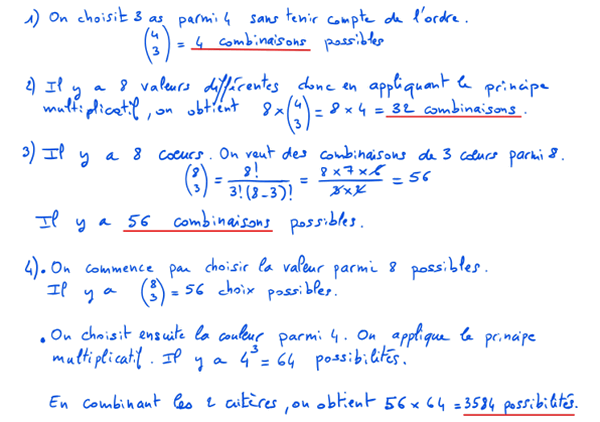 1) On choisit 3 as parmi 4 sans tenir compte de l'ordre.
(4 3) = 4 combinaisons possibles
2) Il y a 8 valeurs différentes donc en appliquant le principe
multiplicatif, on obtient 8 × (4 3) = 8 × 4 = 32 combinaisons.
3) Il y a 8 coeurs. On veut des combinaisons de 3 cœurs parmi 8.
(8 3) = 8! / 3!(8-3)! = 8 × 7 × 6 / 3 × 2 = 56
Il y a 56 combinaisons possibles.
4). On commence par choisir la valeur parmi 8 possibles.
Il y a (8 3) = 56 choix possibles.
• On choisit ensuite la couleur parmi 4. On applique le principe
multiplicatif. Il y a 4³ = 64 possibilités.
En combinant les 2 critères, on obtient 56 × 64 = 3584 possibilités.